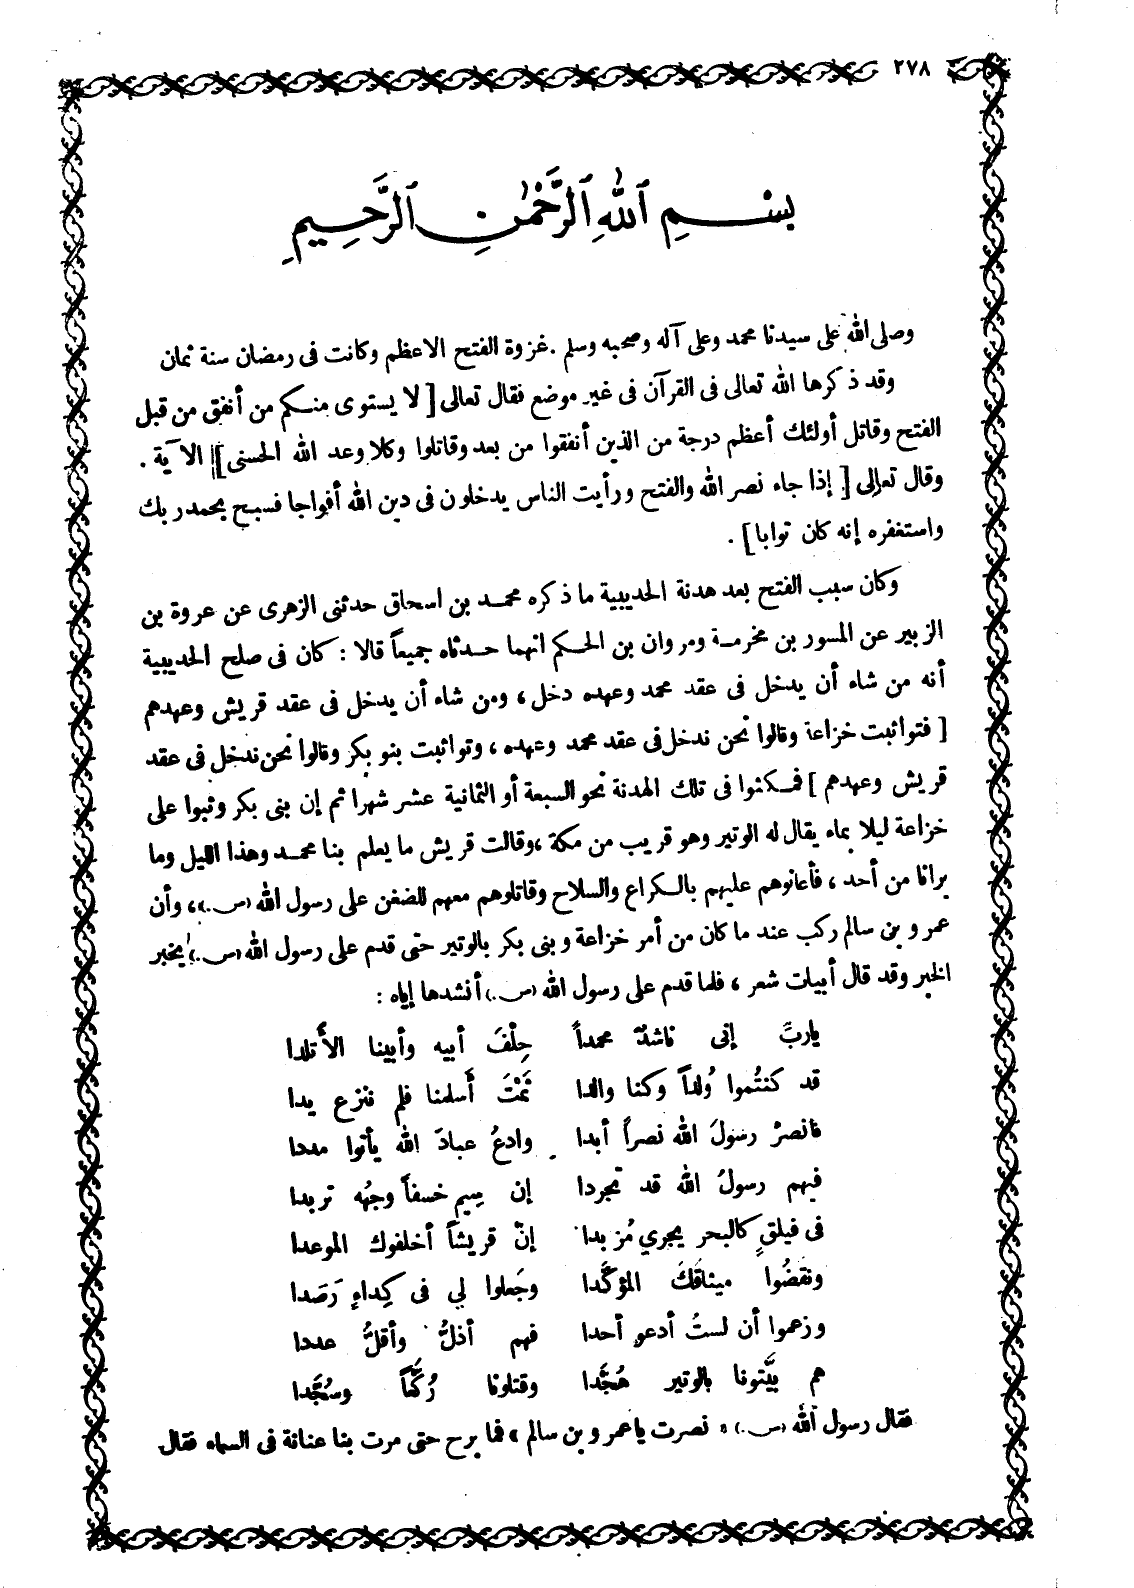 ٢٧٨
بِسْمِ ٱللهِ ٱلرَّحْمٰنِ ٱلرَّحِيمِ
وصلى الله على سيدنا محمد وعلى آله وصحبه وسلم . غزوة الفتح الاعظم وكانت فى رمضان سنة ثمان
وقد ذكرها الله تعالى فى القرآن فى غير موضع فقال تعالى [ لا يستوى منكم من أنفق من قبل
الفتح وقاتل أولئك أعظم درجة من الذين أنفقوا من بعد وقاتلوا وكلا وعد الله الحسنى ] الآية .
وقال تعالى [ إذا جاء نصر الله والفتح ورأيت الناس يدخلون فى دين الله أفواجا فسبح بحمد ربك
واستغفره إنه كان توابا ] .
وكان سبب الفتح بعد هدنة الحديبية ما ذكره محمد بن اسحاق حدثنى الزهرى عن عروة بن
الزبير عن المسور بن مخرمة ومروان بن الحكم انهما حدثاه جميعاً قالا : كان فى صلح الحديبية
أنه من شاء أن يدخل فى عقد محمد وعهده دخل ، ومن شاء أن يدخل فى عقد قريش وعهدهم
[ فتواثبت خزاعة وقالوا نحن ندخل فى عقد محمد وعهده ، وتواثبت بنو بكر وقالوا نحن ندخل فى عقد
قريش وعهدهم ] فمكثوا فى تلك الهدنة نحو السبعة أو الثمانية عشر شهرا ثم إن بنى بكر وثبوا على
خزاعة ليلا بماء يقال له الوتير وهو قريب من مكة ، وقالت قريش ما يعلم بنا محمد وهذا الليل وما
يرانا من أحد ، فأعانوهم عليهم بالكراع والسلاح وقاتلوهم معهم للضغن على رسول الله (س.) ، وأن
عمرو بن سالم ركب عند ما كان من أمر خزاعة وبنى بكر بالوتير حتى قدم على رسول الله (س.) يخبر
الخبر وقد قال أبيات شعر ، فلما قدم على رسول الله (س.) أنشدها إياه :
ياربِّ إنى ناشدٌ محمداً حِلْفَ أبيه وأبينا الأَتلدا
قد كنتُموا وُلداً وكنا والدا ثَمَّتَ أَسلمنا فلم ننزع يدا
فانصرْ رسولَ الله نصراً أبدا وادعُ عبادَ الله يأتوا مددا
فيهم رسولُ الله قد تجردا إن سِيم خسفاً وجهُه تربدا
فى فيلقٍ كالبحر يجري مُزبدا إنّ قريشاً أخلفوك الموعدا
ونقضُوا ميثاقَكَ المؤكَّدا وجَعلوا لي فى كِداءٍ رَصَدا
وزعموا أن لستُ أدعو أحدا فهم أذلُّ وأقلُّ عددا
هم بيَّتونا بالوتير هُجَّدا وقتلونا رُكَّعاً وسُجَّدا
فقال رسول الله (س.) « نصرت ياعمرو بن سالم » فما برح حتى مرت بنا عنانة فى السماء فقال